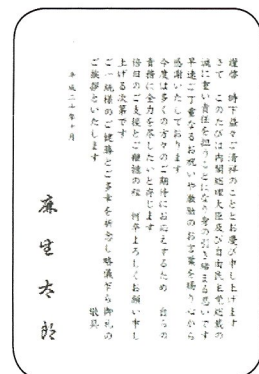 謹啓 時下益々ご清祥のこととお慶び申し上げます
さて このたびは内閣総理大臣及び自由民主党総裁の
誠に重い責任を担うことになり身の引き締まる思いです
早速ご丁重なるお祝いや激励のお言葉を賜り心から
感謝いたしております
今後は多くの方々のご期待にお応えするため 自らの
責務に全力を尽したいと存じます
倍旧のご支援とご鞭撻の程 何卒よろしくお願い申し
上げる次第です
ご一統様のご健勝とご多幸を祈念し略儀乍ら御礼の
ご挨拶といたします 敬具
平成二十年十月
麻生太郎